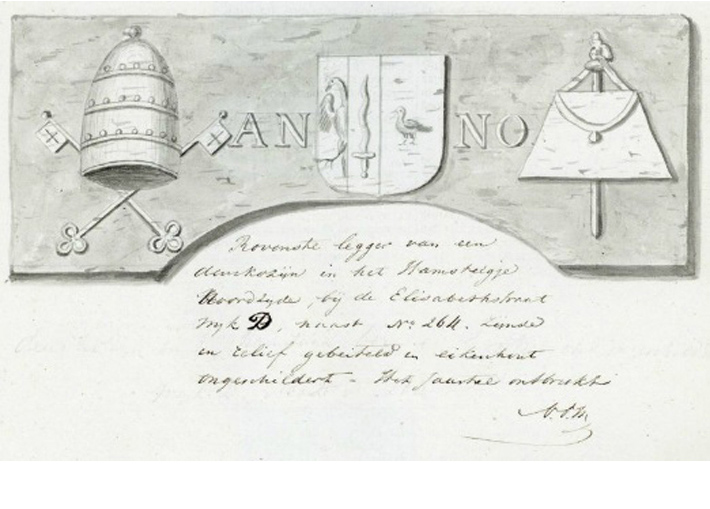 ANNO
Bovenste legger van een
deurkozijn in het Hamsteegje
Noordzyde, bij de Elisabethstraat
Wyk D, naast, No 264. Zijnde
en relief gebeiteld in eikenhout
ongeschilderd - Het Jaartal ontbreekt